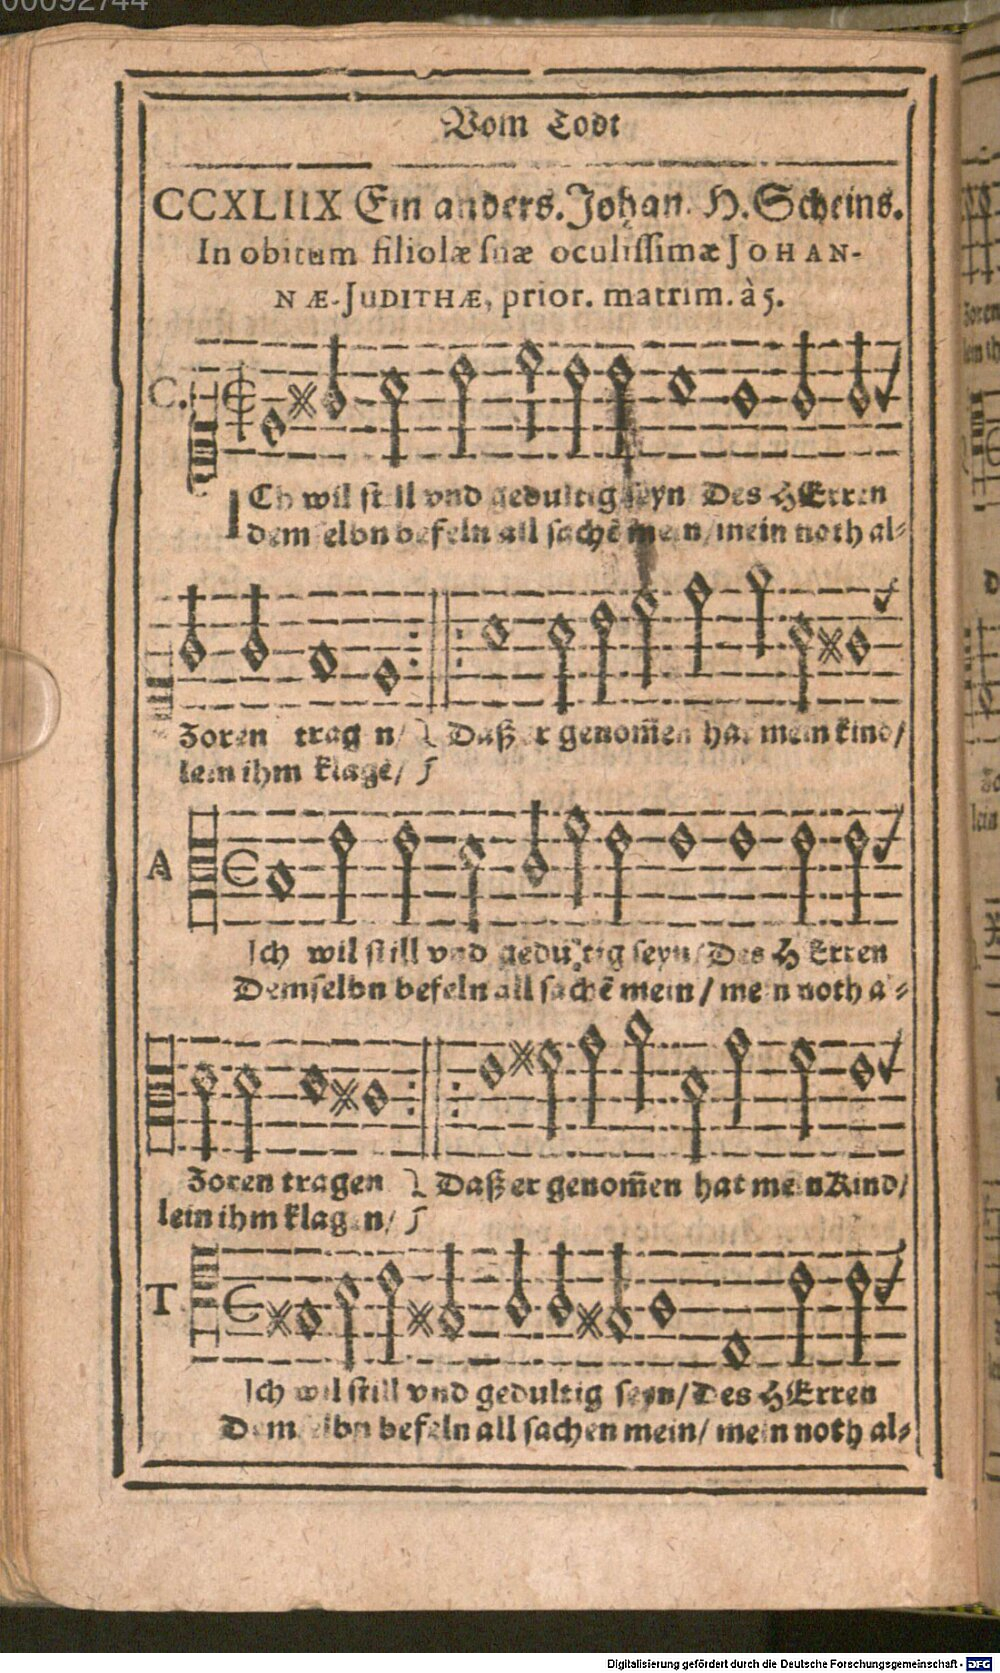 00092744
Vom Todt
CCXLIIX Ein anders. Johan. H. Scheins.
In obitum filiolæ suæ oculissimæ JOHAN-
NÆ-JUDITHÆ, prior. matrim. à 5.
C.
ICh wil still vnd gedultig seyn Des HErren
demselbn befeln all sachē mein/mein noth al-
Zoren tragen/ Daß er genom̄en hat mein kind/
lein ihm klagē/
A
Ich wil still vnd gedultig seyn/Des HErren
Demselbn befeln all sachē mein/mein noth al-
Zoren tragen Daß er genom̄en hat mein Kind/
lein ihm klagen/
T
Ich wil still vnd gedultig seyn/Des HErren
Demselbn befeln all sachen mein/mein noth al-
Digitalisierung gefördert durch die Deutsche Forschungsgemeinschaft - DFG